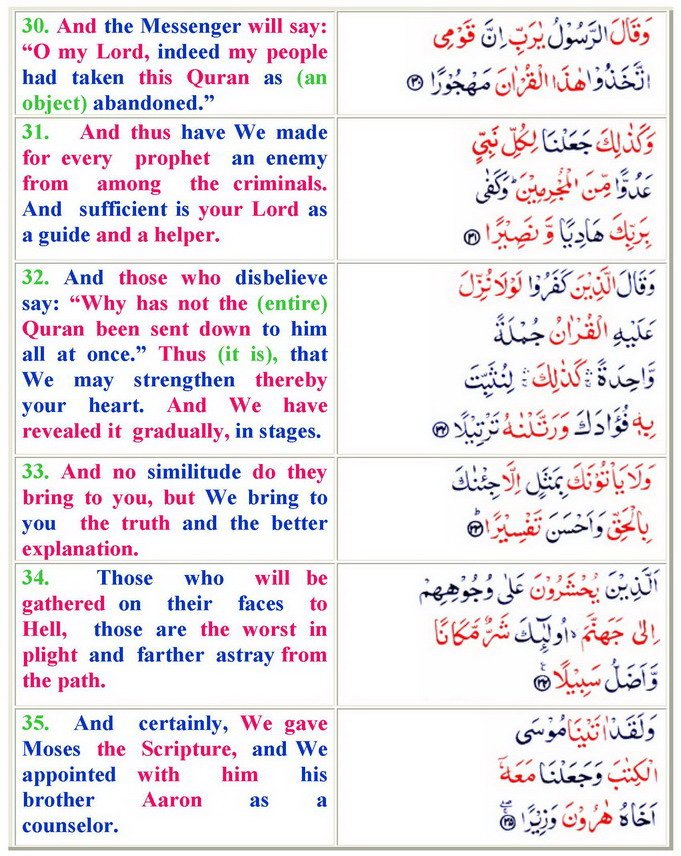 30. And the Messenger will say:
“O my Lord, indeed my people
had taken this Quran as (an
object) abandoned.”
وَقَالَ الرَّسُوْلُ يٰرَبِّ اِنَّ قَوْمِى
اتَّخَذُوْا هٰذَا الْقُرْاٰنَ مَهْجُوْرًا ﴿۳۰﴾
31. And thus have We made
for every prophet an enemy
from among the criminals.
And sufficient is your Lord as
a guide and a helper.
وَكَذٰلِكَ جَعَلْنَا لِكُلِّ نَبِيٍّ
عَدُوًّا مِّنَ الْمُجْرِمِيْنَ ؕ وَكَفٰى
بِرَبِّكَ هَادِيًا وَّ نَصِيْرًا ﴿۳۱﴾
32. And those who disbelieve
say: “Why has not the (entire)
Quran been sent down to him
all at once.” Thus (it is), that
We may strengthen thereby
your heart. And We have
revealed it gradually, in stages.
وَقَالَ الَّذِيْنَ كَفَرُوْا لَوْلَا نُزِّلَ
عَلَيْهِ الْقُرْاٰنُ جُمْلَةً
وَّاحِدَةً ۛۚ كَذٰلِكَ ۛۚ لِنُثَبِّتَ
بِهٖ فُؤَادَكَ وَرَتَّلْنٰهُ تَرْتِيْلًا ﴿۳۲﴾
33. And no similitude do they
bring to you, but We bring to
you the truth and the better
explanation.
وَلَا يَاْتُوْنَكَ بِمَثَلٍ اِلَّا جِئْنٰكَ
بِالْحَقِّ وَاَحْسَنَ تَفْسِيْرًا ؕ ﴿۳۳﴾
34. Those who will be
gathered on their faces to
Hell, those are the worst in
plight and farther astray from
the path.
اَلَّذِيْنَ يُحْشَرُوْنَ عَلٰى وُجُوْهِهِمْ
اِلٰى جَهَنَّمَ ۙ اُولٰٓئِكَ شَرٌّ مَّكَانًا
وَّاَضَلُّ سَبِيْلًا ﴿۳۴﴾
35. And certainly, We gave
Moses the Scripture, and We
appointed with him his
brother Aaron as a
counselor.
وَلَقَدْ اٰتَيْنَا مُوْسَى
الْكِتٰبَ وَجَعَلْنَا مَعَهٗۤ
اَخَاهُ هٰرُوْنَ وَزِيْرًا ﴿۳۵﴾